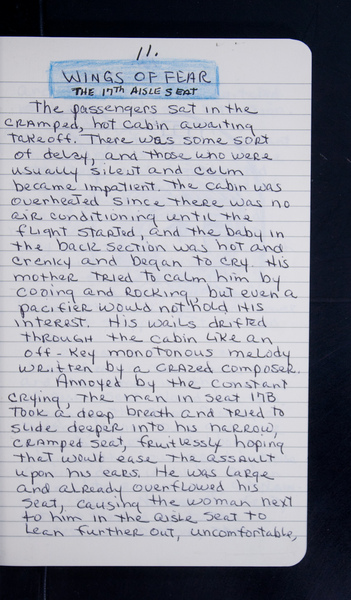 11.
WINGS OF FEAR
THE 17TH AISLE SEAT
The passengers sat in the
cramped, hot cabin awaiting
takeoff. There was some sort
of delay, and those who were
usually silent and calm
became impatient. The cabin was
overheated since there was no
air conditioning until the
flight started, and the baby in
the back section was hot and
cranky and began to cry. His
mother tried to calm him by
cooing and rocking, but even a
pacifier would not hold his
interest. His wails drifted
through the cabin like an
off-key monotonous melody
written by a crazed composer.
Annoyed by the constant
crying, the man in seat 17B
took a deep breath and tried to
slide deeper into his narrow,
cramped seat, fruitlessly hoping
that would ease the assault
upon his ears. He was large
and already overflowed his
seat, causing the woman next
to him in the aisle seat to
lean further out, uncomfortable,